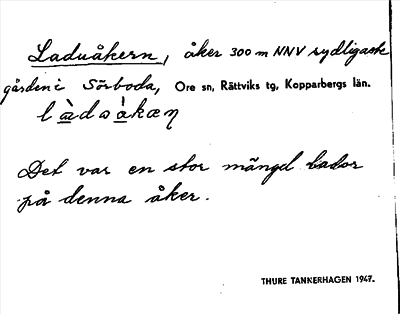 Laduåkern, åker 300 m NNV sydligaste
gården i Sörboda, Ore sn, Rättviks tg, Kopparbergs län.
Det var en stor mängd lador
på denna åker.
THURE TANNERHAGEN 1947.